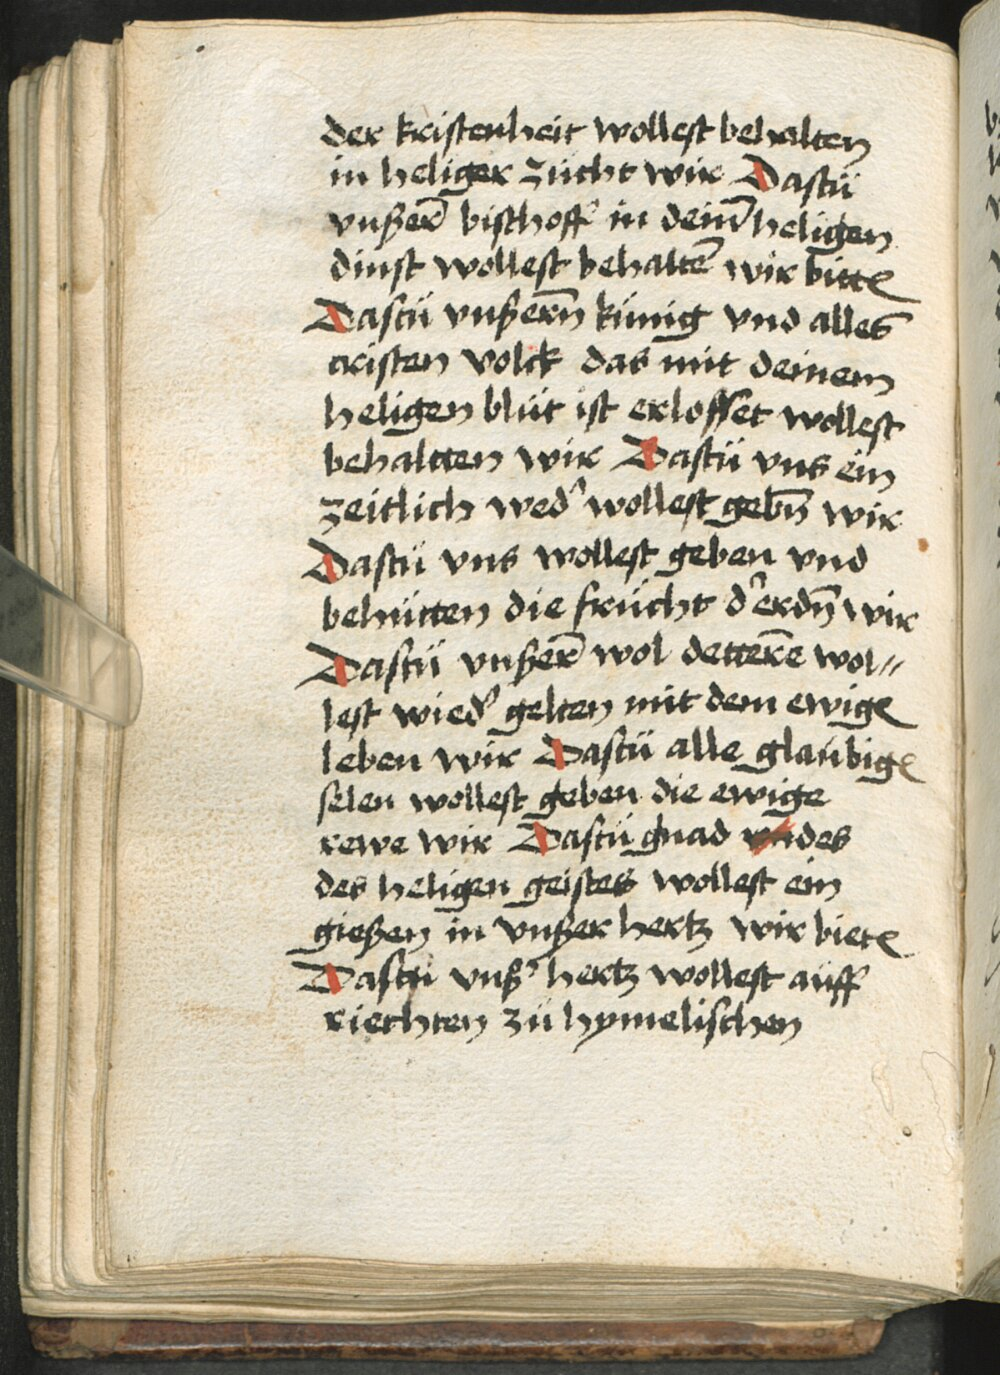 der kristenheit wollest behalten
in heliger zücht wir Dastü
vnßer̄ bischoff in dein̄ heligen
dinst wollest behaltē wir bitte
Dastü vnßern̄ künig vnd alles
cristen volck das mit deinem
heligen blüt ist erlosset wollest
behaltten wir Dastü vns ein
zeitlich wed' wollest gebn̄ wir
Dastü vns wollest geben vnd
behütten die frücht d' erdn̄ wir
Dastü vnßer̄ wol detterē wol//
lest wied' gelten mit dem ewige
leben wir Dastü alle glaübige
selen wollest geben die ewige
rewe wir Dastü gnad vndes
des heligen geistes wollest ein
gießen in vnßer hertz wir biete
Dastü vnß' hertz wollest aüff
riechten zü hymelischen